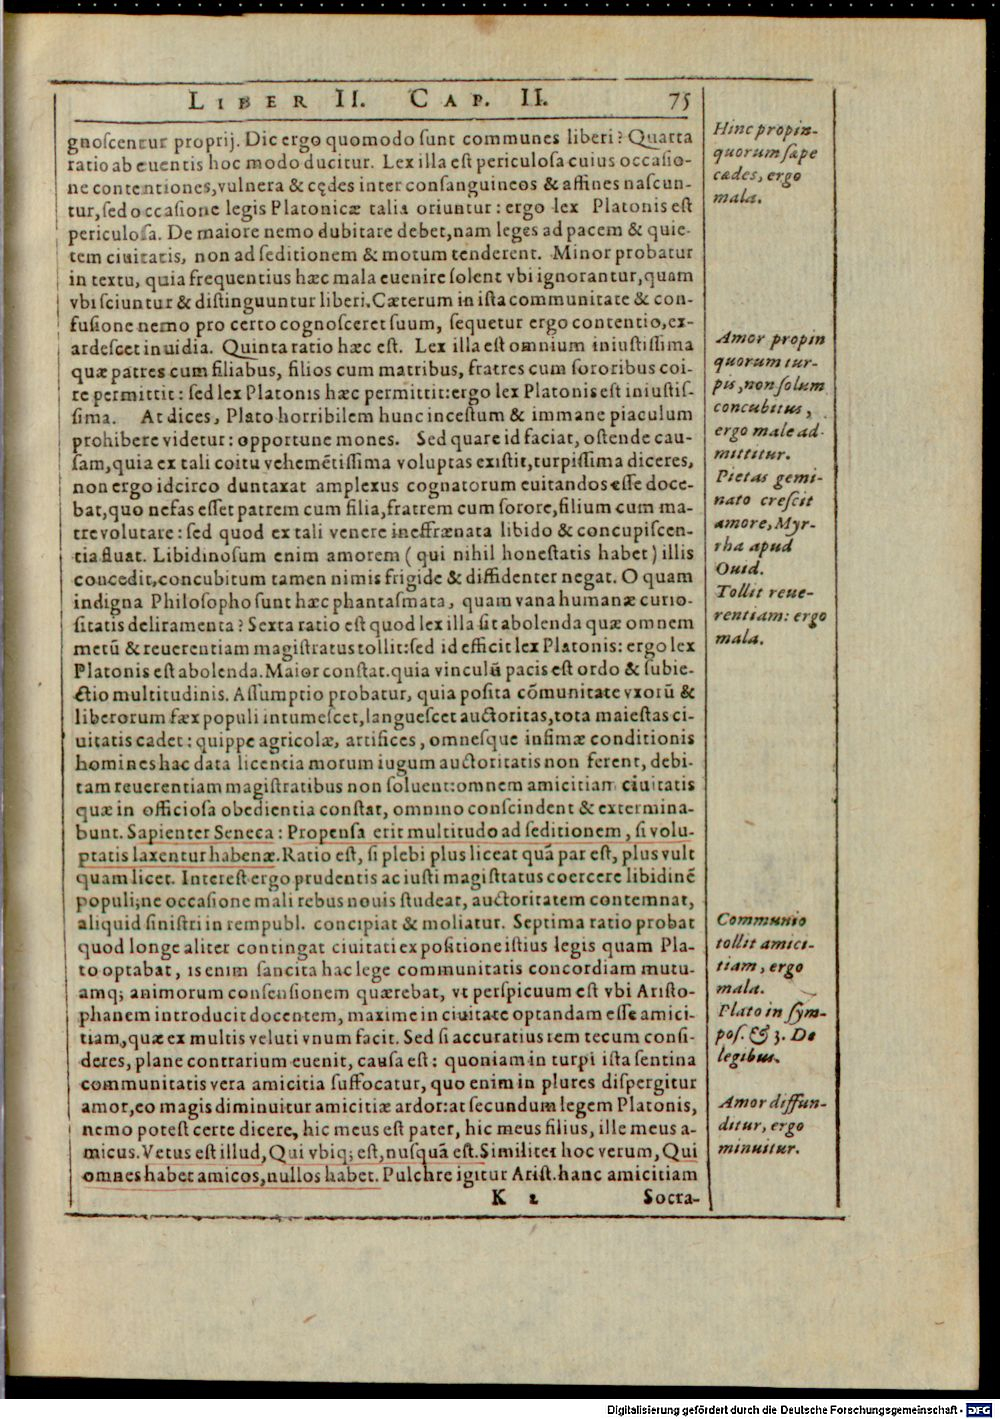 LIBER II. CAP. II. 75
gnoscentur proprij. Dic ergo quomodo sunt communes liberi? Quarta
ratio ab euentis hoc modo ducitur. Lex illa est periculosa cuius occasio-
ne contentiones, vulnera & cędes inter consanguineos & affines nascun-
tur, sed occasione legis Platonicæ talia oriuntur: ergo lex Platonis est
periculosa. De maiore nemo dubitare debet, nam leges ad pacem & quie-
tem ciuitatis, non ad seditionem & motum tenderent. Minor probatur
in textu, quia frequentius hæc mala euenire solent vbi ignorantur, quam
vbi sciuntur & distinguuntur liberi. Cæterum in ista communitate & con-
fusione nemo pro certo cognosceret suum, sequetur ergo contentio, ex-
ardescet inuidia. Quinta ratio hæc est. Lex illa est omnium iniustissima
quæ patres cum filiabus, filios cum matribus, fratres cum sororibus coi-
re permittit: sed lex Platonis hæc permittit: ergo lex Platonis est iniustis-
sima. At dices, Plato horribilem hunc incestum & immane piaculum
prohibere videtur: opportune mones. Sed quare id faciat, ostende cau-
sam, quia ex tali coitu vehemẽtissima voluptas existit, turpissima diceres,
non ergo idcirco duntaxat amplexus cognatorum euitandos esse doce-
bat, quo nefas esset patrem cum filia, fratrem cum sorore, filium cum ma-
tre volutare: sed quod ex tali venere ineffrænata libido & concupiscen-
tia fluat. Libidinosum enim amorem (qui nihil honestatis habet) illis
concedit, concubitum tamen nimis frigide & diffidenter negat. O quam
indigna Philosopho sunt hæc phantasmata, quam vana humanæ curio-
sitatis deliramenta? Sexta ratio est quod lex illa sit abolenda quæ omnem
metũ & reuerentiam magistratus tollit: sed id efficit lex Platonis: ergo lex
Platonis est abolenda. Maior constat. quia vinculũ pacis est ordo & subie-
ctio multitudinis. Assumptio probatur, quia posita cõmunitate vxorũ &
liberorum fæx populi intumescet, languescet auctoritas, tota maiestas ci-
uitatis cadet: quippe agricolæ, artifices, omnesque infimæ conditionis
homines hac data licentia morum iugum auctoritatis non ferent, debi-
tam reuerentiam magistratibus non soluent: omnem amicitiam ciuitatis
quæ in officiosa obedientia constat, omnino conscindent & extermina-
bunt. Sapienter Seneca: Propensa erit multitudo ad seditionem, si volu-
ptatis laxentur habenæ. Ratio est, si plebi plus liceat quã par est, plus vult
quam licet. Interest ergo prudentis ac iusti magistratus coercere libidinẽ
populi; ne occasione mali rebus nouis studeat, auctoritatem contemnat,
aliquid sinistri in rempubl. concipiat & moliatur. Septima ratio probat
quod longe aliter contingat ciuitati ex positione istius legis quam Pla-
to optabat, is enim sancita hac lege communitatis concordiam mutu-
amq; animorum consensionem quærebat, vt perspicuum est vbi Aristo-
phanem introducit docentem, maxime in ciuitate optandam esse amici-
tiam, quæ ex multis veluti vnum facit. Sed si accuratius rem tecum consi-
deres, plane contrarium euenit, causa est: quoniam in turpi ista sentina
communitatis vera amicitia suffocatur, quo enim in plures dispergitur
amor, eo magis diminuitur amicitiæ ardor: at secundum legem Platonis,
nemo potest certe dicere, hic meus est pater, hic meus filius, ille meus a-
micus. Vetus est illud, Qui vbiq; est, nusquã est. Similiter hoc verum, Qui
omnes habet amicos, nullos habet. Pulchre igitur Arist. hanc amicitiam
K 2 Socra-
Hinc propin-
quorum sæpe
cædes, ergo
mala.
Amor propin
quorum tur-
pis, non solum
concubitus,
ergo male ad-
mittitur.
Pietas gemi-
nato crescit
amore, Myr-
rha apud
Ouid.
Tollit reue-
rentiam: ergo
mala.
Communio
tollit amici-
tiam, ergo
mala.
Plato in sym-
pos. & 3. De
legibus.
Amor diffun-
ditur, ergo
minuitur.
Digitalisierung gefördert durch die Deutsche Forschungsgemeinschaft - DFG